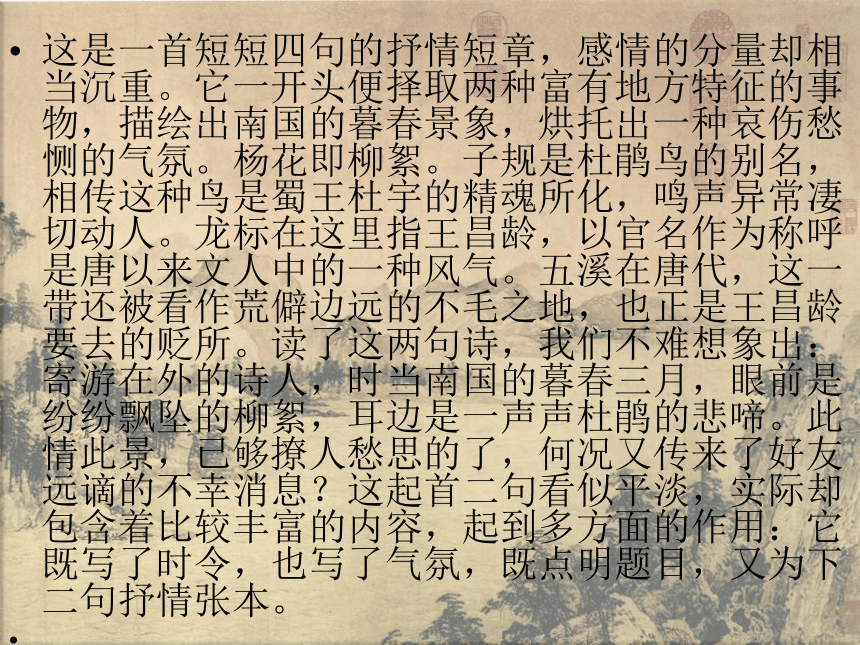 • 这是一首短短四句的抒情短章，感情的分量却相
当沉重。它一开头便择取两种富有地方特征的事
物，描绘出南国的暮春景象，烘托出一种哀伤愁
恻的气氛。杨花即柳絮。子规是杜鹃鸟的别名，
相传这种鸟是蜀王杜宇的精魂所化，鸣声异常凄
切动人。龙标在这里指王昌龄，以官名作为称呼
是唐以来文人中的一种风气。五溪在唐代，这一
带还被看作荒僻边远的不毛之地，也正是王昌龄
要去的贬所。读了这两句诗，我们不难想象出：
寄游在外的诗人，时当南国的暮春三月，眼前是
纷纷飘坠的柳絮，耳边是一声声杜鹃的悲啼。此
情此景，已够撩人愁思的了，何况又传来了好友
远谪的不幸消息？这起首二句看似平淡，实际却
包含着比较丰富的内容，起到多方面的作用：它
既写了时令，也写了气氛，既点明题目，又为下
二句抒情张本。
•